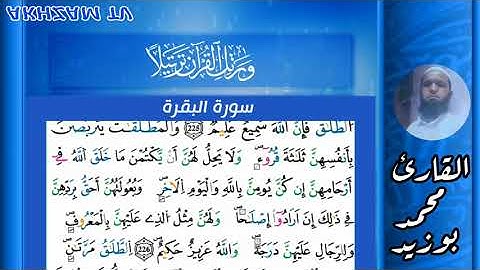 AKHZAM TV
ورتل القرآن ترتيلا
سورة البقرة
الطَّلَٰقَ فَإِنَّ اَللَّهَ سَمِيعٌ عَلِيمٌ (225) وَالْمُطَلَّقَٰتُ يَتَرَبَّصْنَ
بِأَنفُسِهِنَّ ثَلَٰثَةَ قُرُوٓءٖ وَلَا يَحِلُّ لَهُنَّ أَنْ يَّكْتُمْنَ مَا خَلَقَ اَللَّهُ فِے
أَرْحَامِهِنَّ إِن كُنَّ يُومِنَّ بِاللَّهِ وَالْيَوْمِ اِلَاخِرِ وَبُعُولَتُهُنَّ أَحَقُّ بِرَدِّهِنَّ
فِے ذَٰلِكَ إِنَ اَرَادُوٓاْ إِصْلَٰحاٗ وَلَهُنَّ مِثْلُ اُلذِے عَلَيْهِنَّ بِالْمَعْرُوفِ
وَلِلرِّجَالِ عَلَيْهِنَّ دَرَجَةٞ وَاللَّهُ عَزِيزٌ حَكِيمٌ (226) اِلطَّلَٰقُ مَرَّتَٰنِ
القارئ
محمد
بوزيد